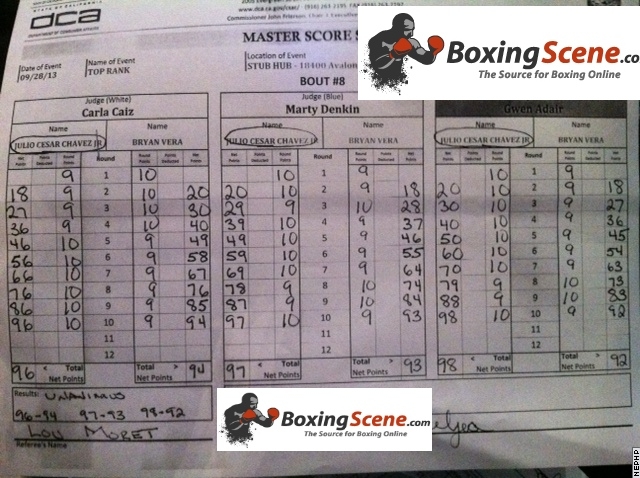 STATE OF CALIFORNIA
dca
DEPARTMENT OF CONSUMER AFFAIRS
www.dca.ca.gov/csac/ (916) 263 2195 FAX (916) 263
Commissioner John Frierson, Chair | Executive
MASTER SCORE S
BoxingScene.co
The Source for Boxing Online
Date of Event
09/28/13
Name of Event
TOP RANK
Location of Event
STUB HUB - 18400 Avalon
BOUT #8
Judge (White)
Carla Caiz
Judge (Blue)
Marty Denkin
Gwen Adair
Name Name Name Name Name Name
JULIO CESAR CHAVEZ JR BRYAN VERA JULIO CESAR CHAVEZ JR BRYAN VERA JULIO CESAR CHAVEZ JR BRYAN VERA
Net Points Points Deducted Round Points Round Round Points Points Deducted Net Points Net Points Points Deducted Round Points Round Round Points Points Deducted Net Points Net Points Points Deducted Round Points Round Round Points Points Deducted Net Points
9 1 10 10 1 9 10 1 9
18 9 2 10 20 20 10 2 9 18 20 10 2 9 18
27 9 3 10 30 29 9 3 10 28 30 10 3 9 27
36 9 4 10 40 39 10 4 9 37 40 10 4 9 36
46 10 5 9 49 49 10 5 9 46 50 10 5 9 45
56 10 6 9 58 59 10 6 9 55 60 10 6 9 54
66 10 7 9 67 69 10 7 9 64 70 10 7 9 63
76 10 8 9 76 78 9 8 10 74 79 9 8 10 73
86 10 9 9 85 87 9 9 10 84 88 9 9 10 83
96 10 10 9 94 97 10 10 9 93 98 10 10 9 92
11 11 11
12 12 12
96 < Total > 94 97 < Total > 93 98 < Total > 92
Net Points Net Points Net Points
Results: UNANIMOUS
96-94 97-93 98-92
LOU MORET
Referee's Name
BoxingScene.com
The Source for Boxing Online
NEPHP